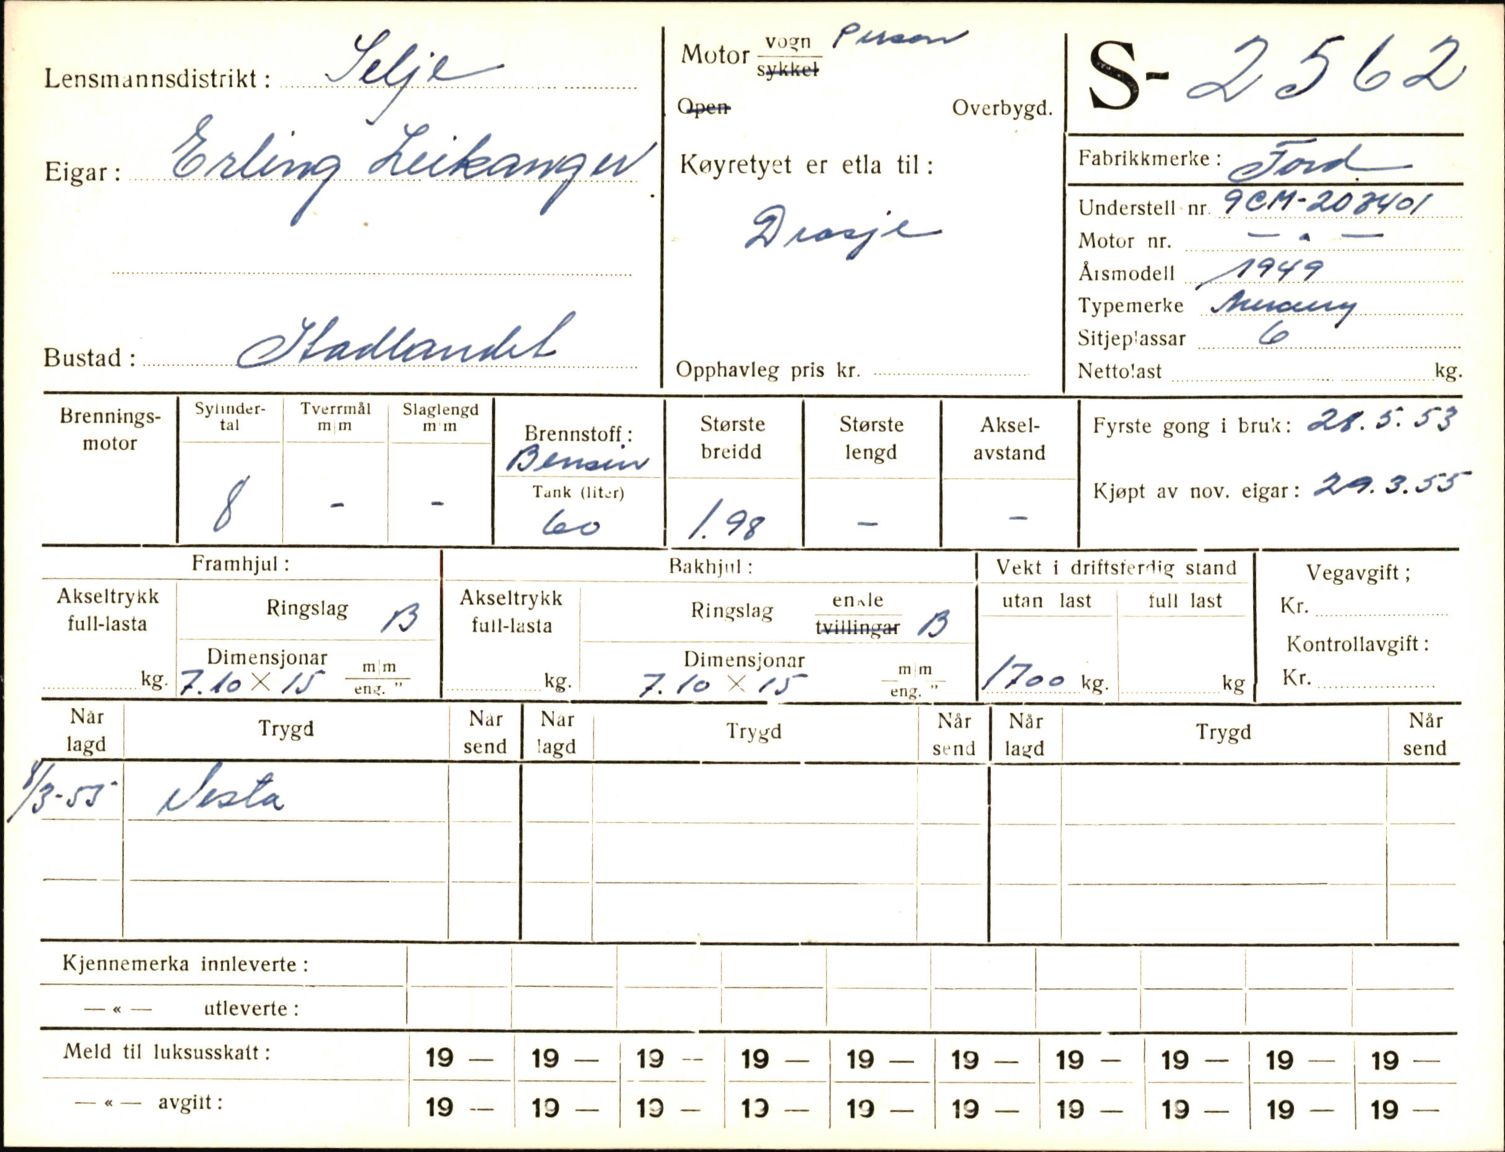 Lensmannsdistrikt: Selje
Eigar: Erling Leikanger
Bustad: Stadlandet
Motor vogn Person
sykkel
Open Overbygd.
Køyretyet er etla til:
Drosje
Opphavleg pris kr.
S- 2562
Fabrikkmerke: Ford
Understell nr. 9CM-203401
Motor nr. — " —
Årsmodell 1949
Typemerke Mercury
Sitjeplassar 6
Nettolast kg.
Brennings-
motor
Sylinder-
tal
8
Tverrmål
m|m
-
Slaglengd
m|m
-
Brennstoff:
Bensin
Tank (liter)
60
Største
breidd
1.98
Største
lengd
-
Aksel-
avstand
-
Fyrste gong i bruk: 28.5.53
Kjøpt av nov. eigar: 29.3.55
Framhjul:
Akseltrykk
full-lasta
kg.
Ringslag B
Dimensjonar m|m
7.10 X 15 eng. "
Bakhjul:
Akseltrykk
full-lasta
kg.
Ringslag enkle
tvillingar B
Dimensjonar m|m
7.10 X 15 eng. "
Vekt i driftsferdig stand
utan last full last
1700 kg. kg
Vegavgift;
Kr.
Kontrollavgift:
Kr.
Når
lagd
Trygd
Når
send
Når
lagd
Trygd
Når
send
Når
lagd
Trygd
Når
send
/3-55 Vesta
Kjennemerka innleverte:
— « — utleverte:
Meld til luksusskatt: 19 — 19 — 19 — 19 — 19 — 19 — 19 — 19 — 19 — 19 —
— « — avgift: 19 — 19 — 19 — 19 — 19 — 19 — 19 — 19 — 19 — 19 —